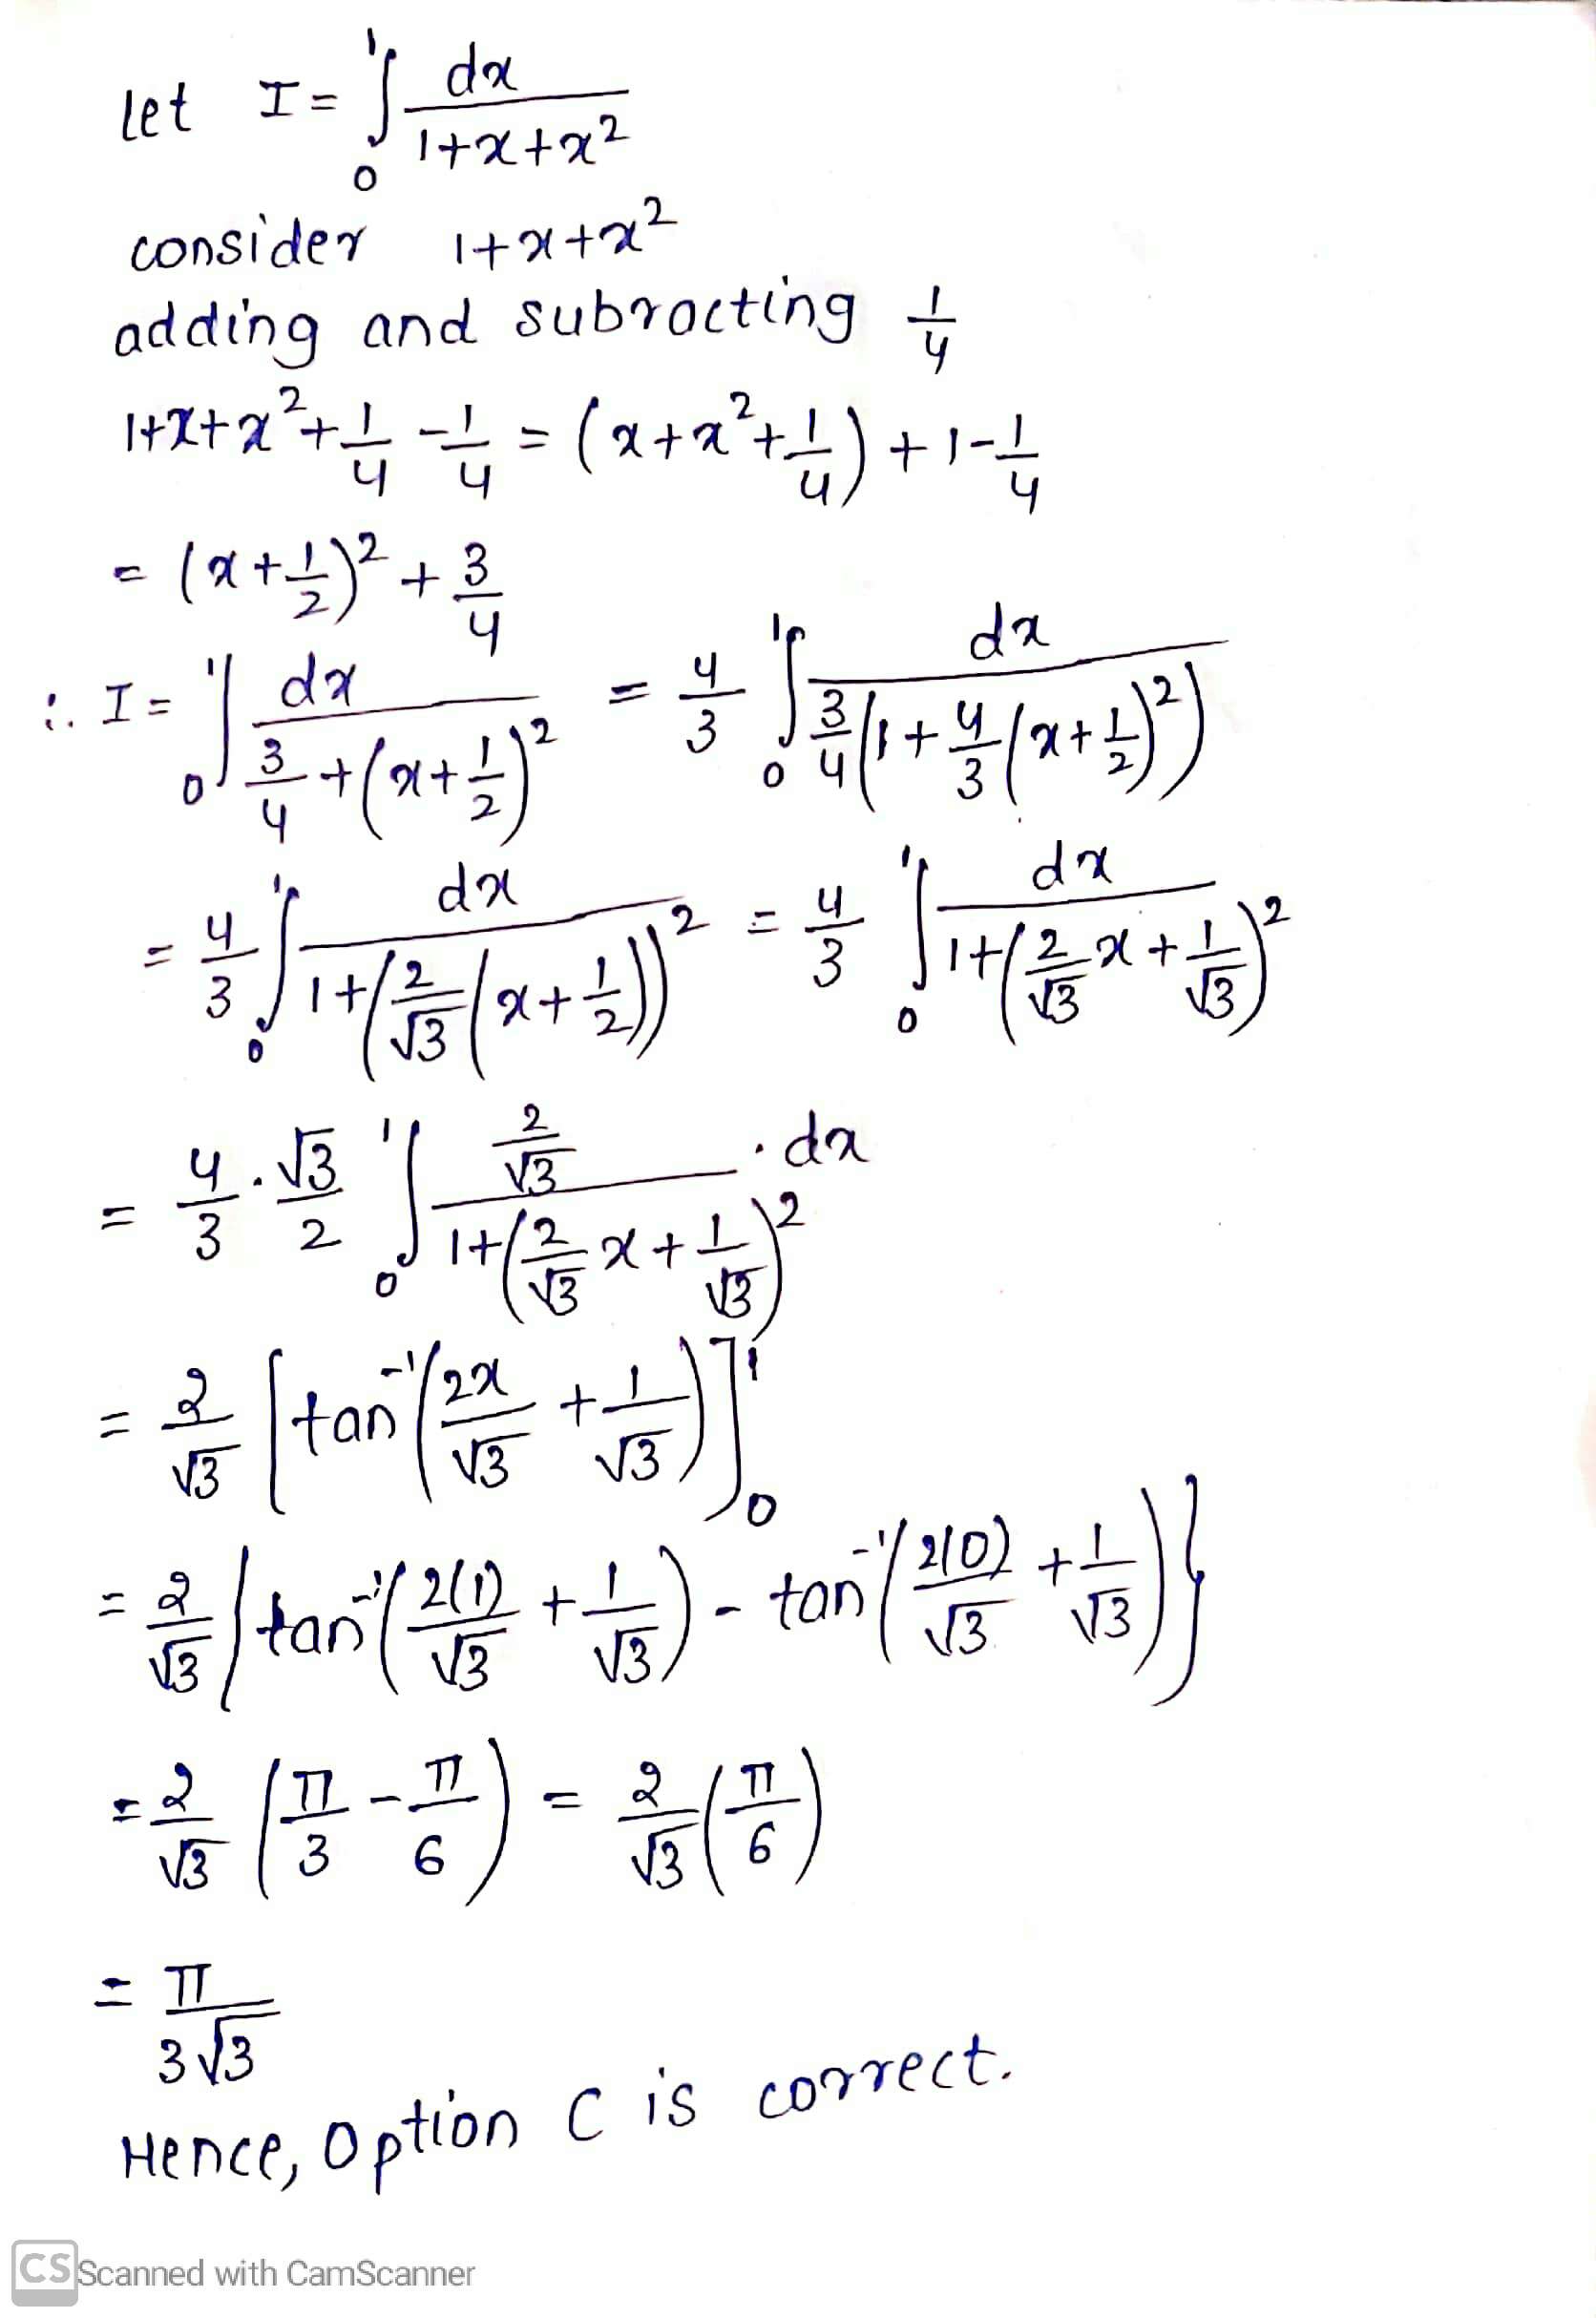 let I = ∫₀¹ dx/(1+x+x²)
consider 1+x+x²
adding and subracting 1/4
1+x+x²+1/4 -1/4 = (x+x²+1/4) +1-1/4
= (x+1/2)² + 3/4
∴ I = ∫₀¹ dx/(3/4+(x+1/2)²) = 4/3 ∫₀¹ dx/(3/4(1+4/3(x+1/2)²))
= 4/3 ∫₀¹ dx/(1+(2/√3(x+1/2))²) = 4/3 ∫₀¹ dx/(1+(2/√3 x+1/√3)²)
= 4/3 · √3/2 ∫₀¹ (2/√3)/(1+(2/√3 x+1/√3)²) · dx
= 2/√3 [tan⁻¹(2x/√3 + 1/√3)]₀¹
= 2/√3 {tan⁻¹(2(1)/√3 + 1/√3) - tan⁻¹(2(0)/√3 + 1/√3)}
= 2/√3 (π/3 - π/6) = 2/√3 (π/6)
= π/(3√3)
Hence, Option C is correct.
CS Scanned with CamScanner